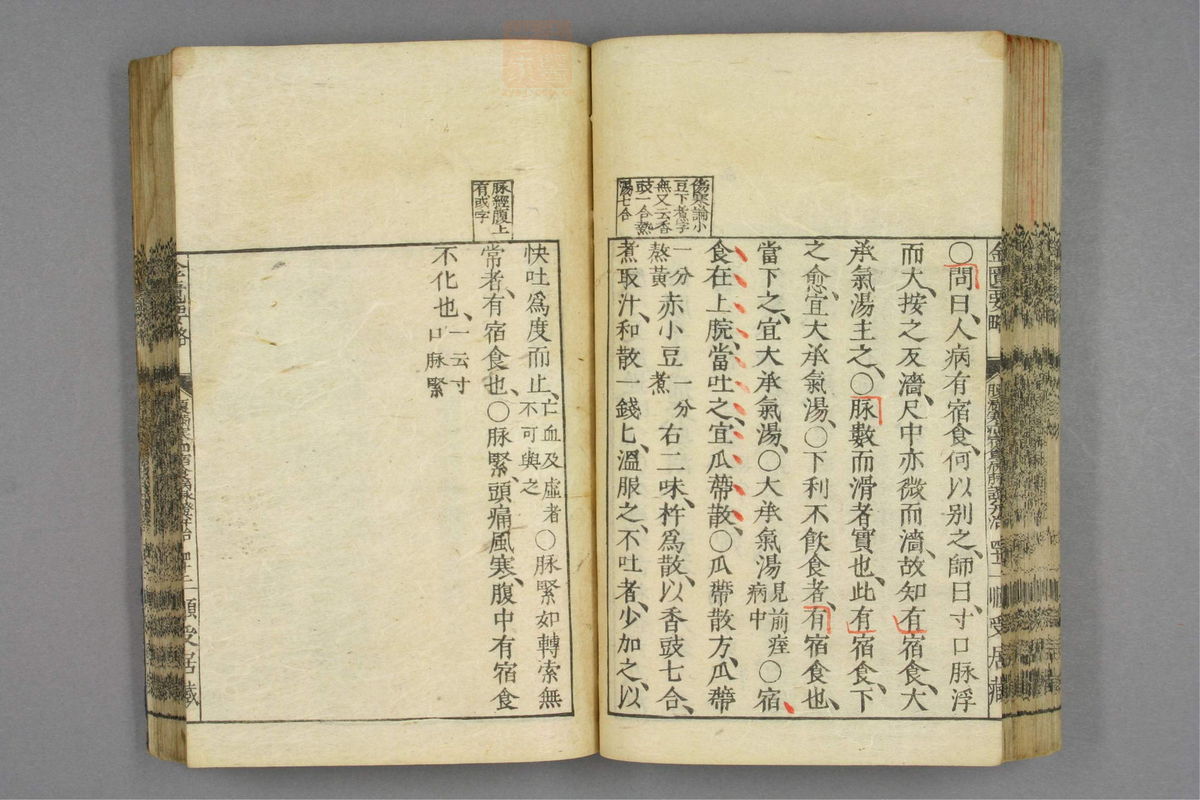 金匱要略
傷寒論小
豆下煮字
無又云香
豉一合熱
湯七合
〇問曰、人病有宿食、何以別之、師曰、寸口脉浮
而大、按之反濇、尺中亦微而濇、故知有宿食、大
承氣湯主之、〇脉數而滑者實也、此有宿食、下
之愈、宜大承氣湯、〇下利不飲食者、有宿食也、
當下之、宜大承氣湯、〇大承氣湯見前痓病中〇宿
食在上脘、當吐之、宜瓜蔕散、〇瓜蔕散方、瓜蔕
一分熬黃赤小豆一分煮右二味、杵爲散、以香豉七合、
煮取汁、和散一錢匕、溫服之、不吐者、少加之、以
脉經腹上
有或字
快吐爲度而止、亡血及虛者不可與之〇脉緊如轉索無
常者、有宿食也、〇脉緊、頭痛風寒、腹中有宿食
不化也、一云寸口脉緊
順受居藏